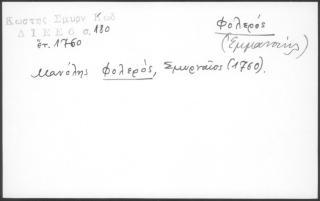 Κωστης Σμυρν Κωδ
ΔΙΕΕΘ σ. 180
ἔτ. 1760
Φολερός
(Ἐμμανουήλ)
Μανόλης Φολερός, Σμυρναῖος (1760).